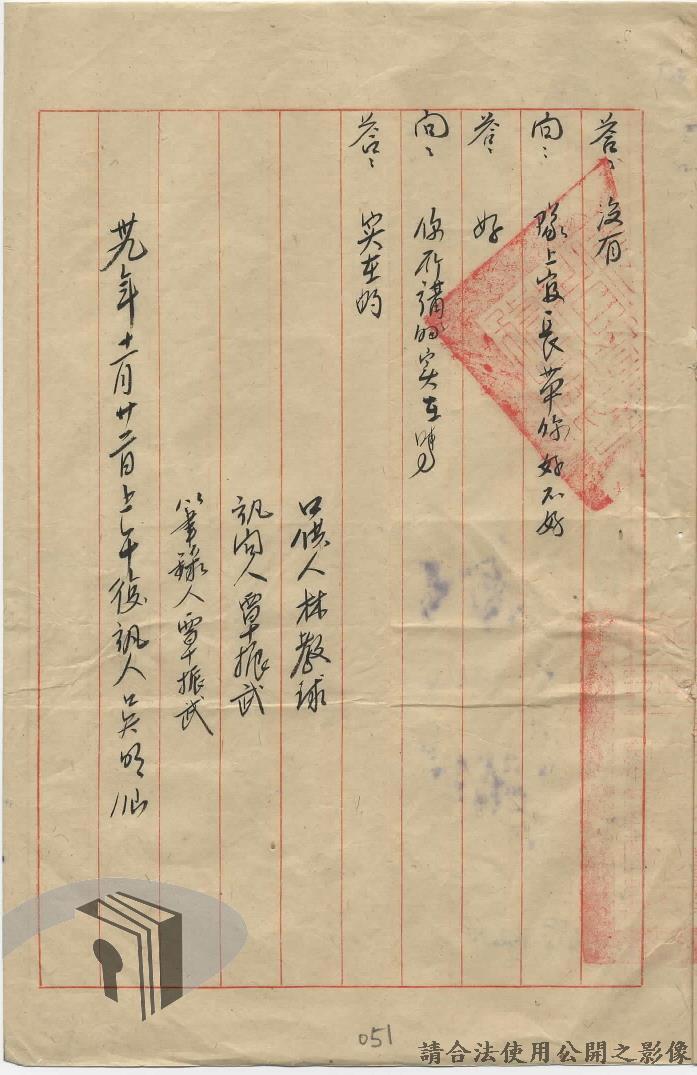 答：没有
问：隊上官長带你好不好
答：好
问：你所講的实在嗎
答：实在的
口供人林教球
訊问人覃振武
笔錄人覃振武
卅九年十一月廿二日上午後訊人吳明仙
051
請合法使用公開之影像